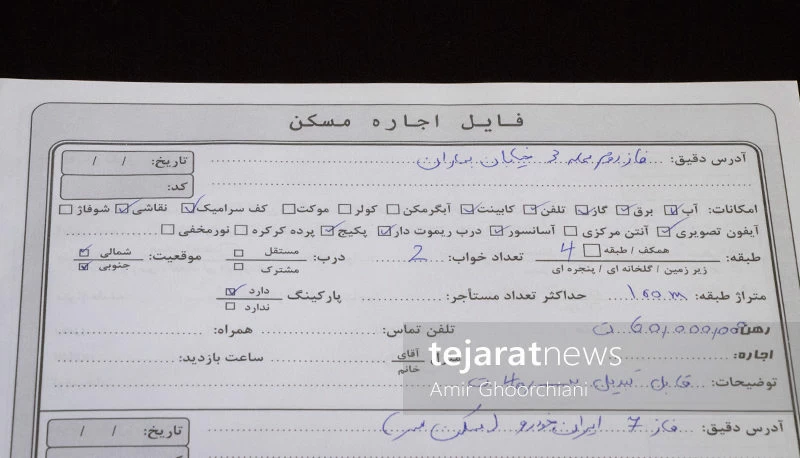 فایل اجاره مسکن
آدرس دقیق: فاز دوم محله 3 خیابان بهاران
تاریخ: / /
کد:
امکانات: آب برق گاز تلفن کابینت آبگرمکن کولر موکت کف سرامیک نقاشی شوفاژ
آیفون تصویری آنتن مرکزی آسانسور درب ریموت دار پکیج پرده کرکره نورمخفی
طبقه: همکف / طبقه 4 تعداد خواب: 2 درب: مستقل موقعیت: شمالی
زیر زمین / گلخانه ای / پنجره ای مشترک جنوبی
متراژ طبقه: 100 m حداکثر تعداد مستأجر: پارکینگ دارد
ندارد
رهن: تلفن تماس: همراه:
اجاره: منزل آقای ساعت بازدید:
خانم
توضیحات: قابل تبدیل
tejaratnews
Amir Ghoorchiani
آدرس دقیق: فاز 7 ایران خودرو (مسکن مهر)
تاریخ: / /